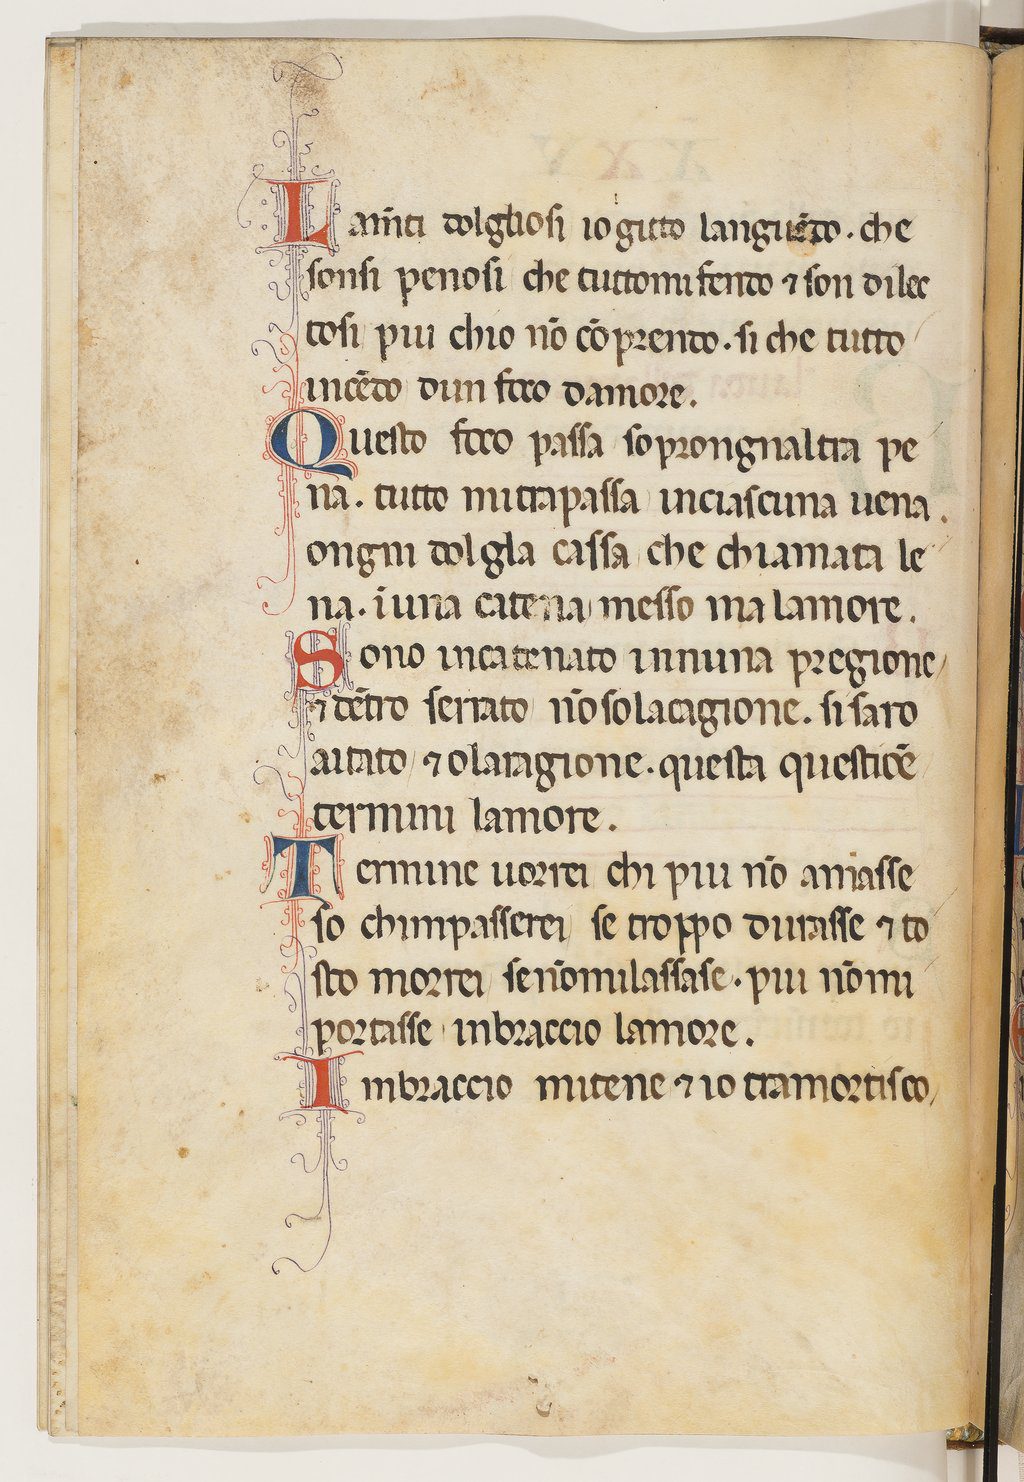 Lam̄ti dolghosi io gitto languēdo. che
sonsi penosi che tuttomi fendo ⁊ son dilec
tosi piu chio nō cōprendo. si che tutto
incēdo dun foco damore.
Questo foco passa soprongnaltra pe
na. tutto mitrapassa inciascuna uena.
ongni dolgla cassa che chiamata le
na. īuna catena messo ma lamore.
Sono incatenato innuna pregione
⁊ dētro serrato nōsolacagione. si saro
aitato ⁊ olaragione. questa questiōē
termini lamore.
Termine uorrei chi piu nō amasse
so chimpasserei se troppo durasse ⁊ to
sto morrei senōmilassase. piu nōmi
portasse inbraccio lamore.
Inbraccio mitene ⁊ io tramortisco